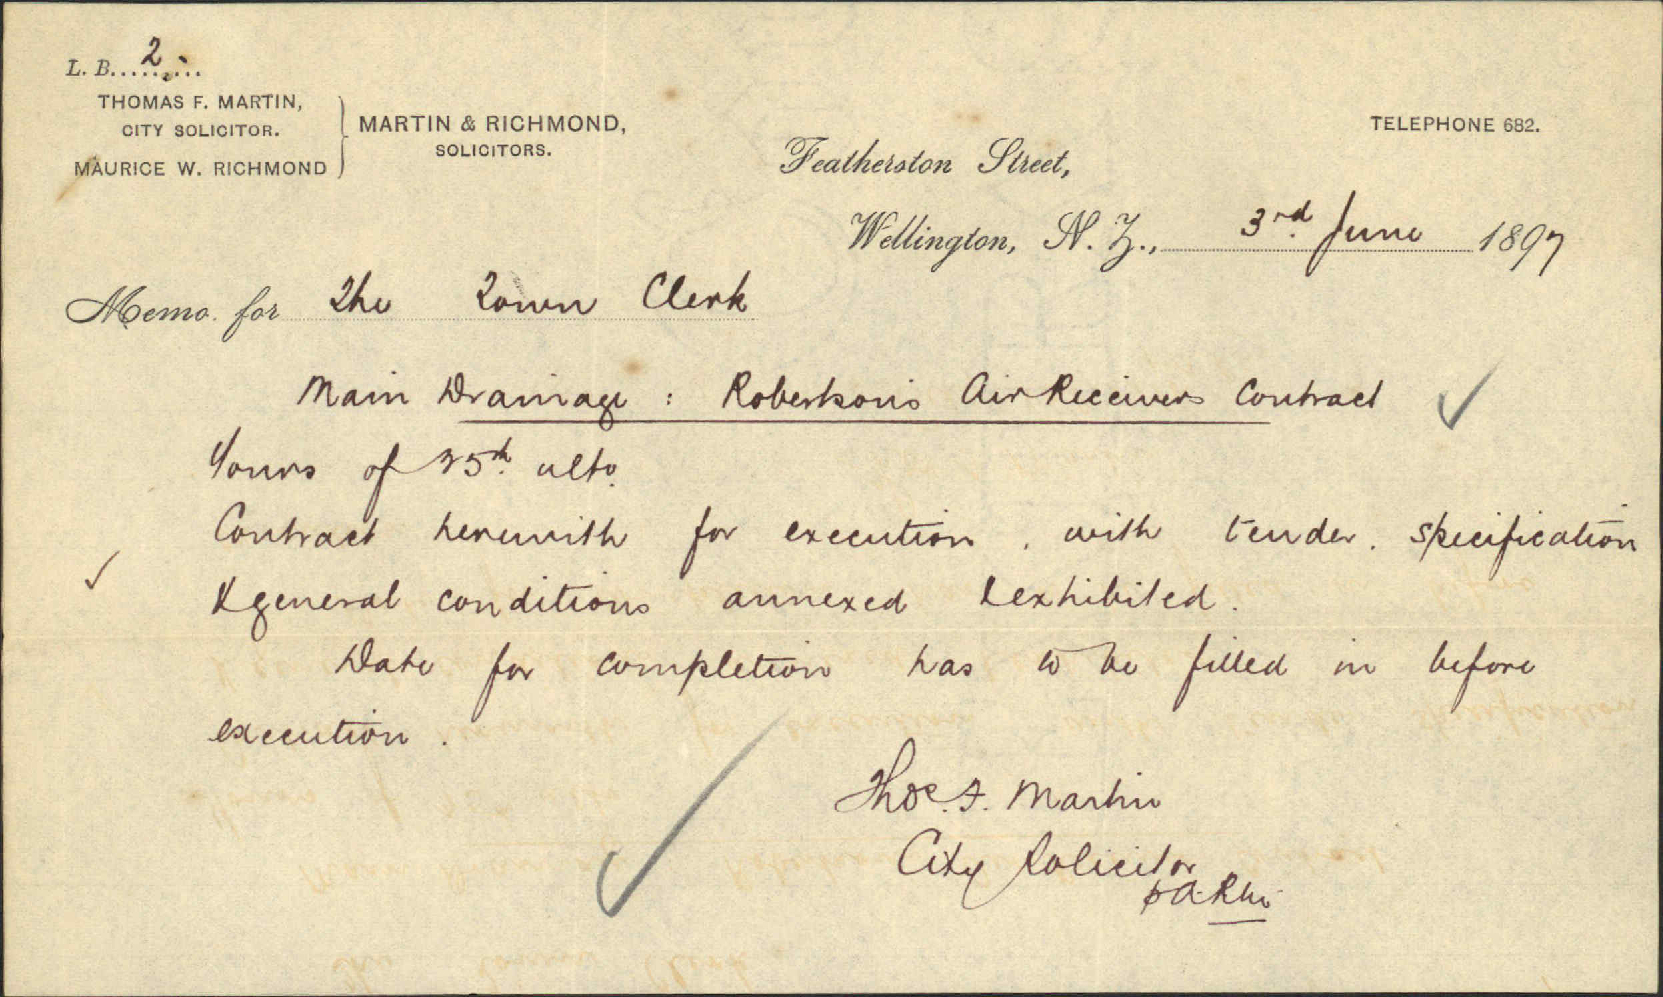 L. B. 2
THOMAS F. MARTIN,
CITY SOLICITOR.
MAURICE W. RICHMOND
MARTIN & RICHMOND,
SOLICITORS.
TELEPHONE 682.
Featherston Street,
Wellington, N. Z., 3rd June 1897
Memo. for The Town Clerk
Main Drainage : Robertson's Air Receivers Contract
Yours of 25th ulto.
Contract herewith for execution, with tender, specification
& general conditions annexed & exhibited.
Date for completion has to be filled in before
execution.
Thos. F. Martin
City Solicitor